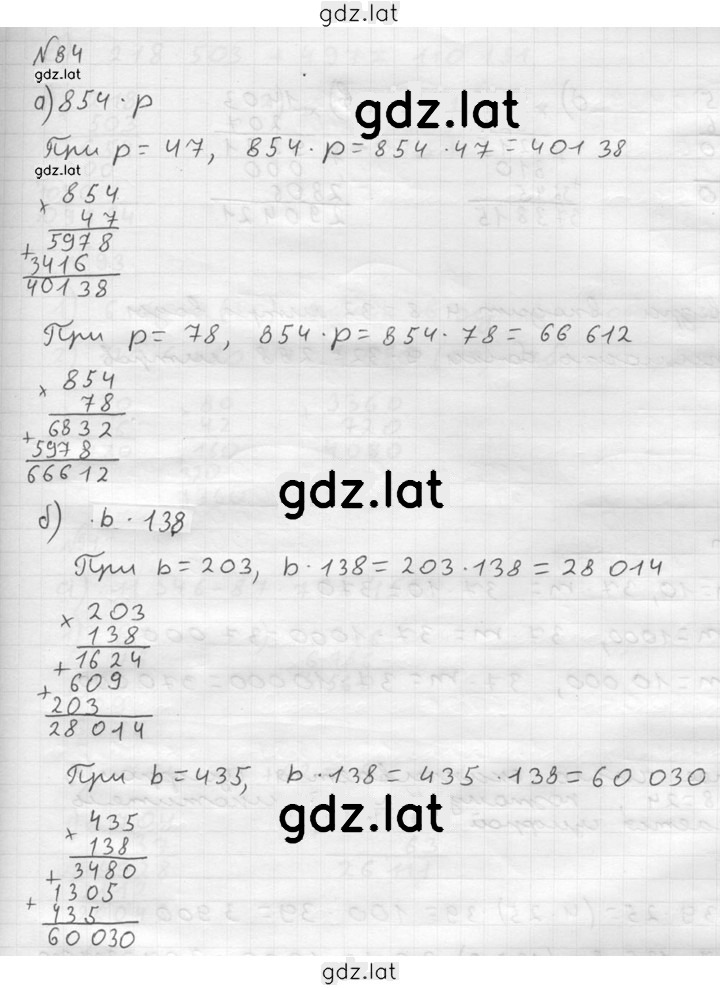 gdz.lat
№84
gdz.lat
а) 854 · p
gdz.lat
При p = 47, 854 · p = 854 · 47 = 401 38
gdz.lat
× 854
47
+ 5978
3416
40138
При p = 78, 854 · p = 854 · 78 = 66 612
× 854
78
+ 6832
5978
66612
gdz.lat
б) · b · 138
При b = 203, b · 138 = 203 · 138 = 28 014
× 203
138
+ 1624
+ 609
203
28 014
При b = 435, b · 138 = 435 · 138 = 60 030
gdz.lat
× 435
138
+ 3480
+ 1305
435
60 030
gdz.lat